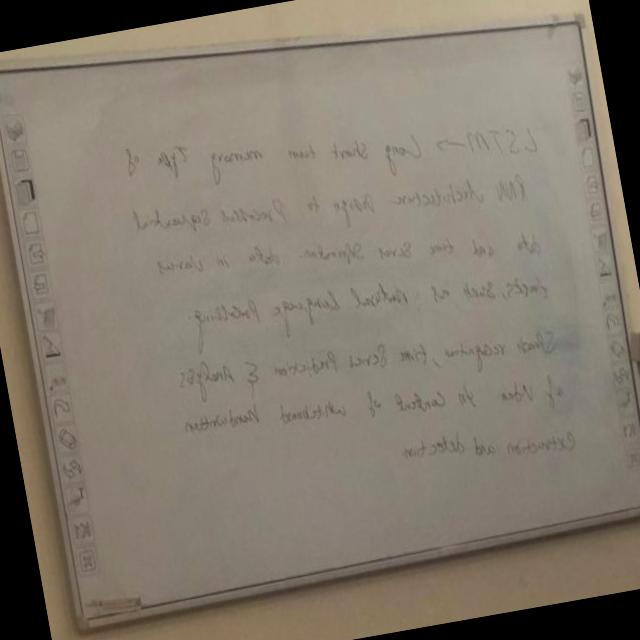 LSTM → Long Short term memory Type of
RNN Architecture Design to Process Sequential
data and time Series data in various
such as Natural Language Processing
Speech recognition, time Series Prediction & Analysis
of Video In Context of whiteboard handwritten
Extraction and detection